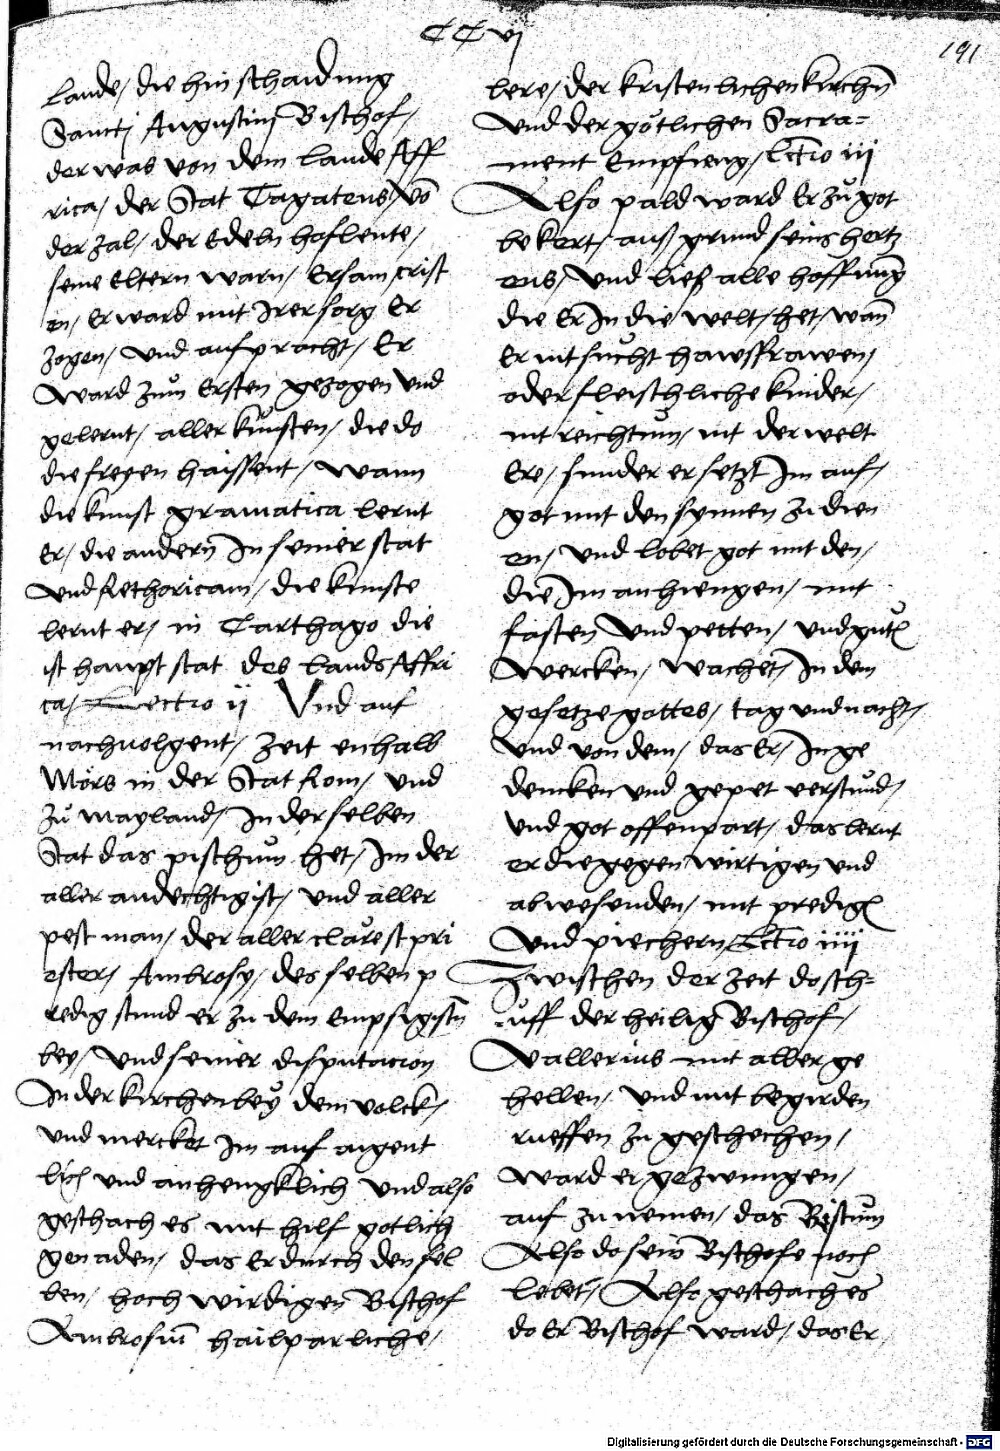 CC vj
191
Lande / die hin schaidung
Sanctj Augustinj Bischof /
der was von dem Lande Aff
rica / der Stat Tagatens / võ
der zal / der Edeln hofleute /
seine Eltern warn / Ersam crist
en / Er ward mit Irer sorg Er
zogen / vnd aufpracht / Er
ward zům Ersten gezogen vnd
gelernt / aller kůnsten / die do
die freyen haissent / wann
die kunst gramatica lernt
Er / die andern In seiner stat
vnd Rethoricam / die kunste
lernt er / in Carthago die
ist haupt stat des Lands Affri
ca / Lectio ij Vnd auf
nachuolgent / zeit enhalb
Mörs in der Stat Rom / vnd
zů Mayland / In der selben
Stat das pischtum het / Im der
aller andechtigist / vnd aller
pest man / der aller clarest pri
ester / Ambrosy / des selben p
redig stund er zu dem Empsigistn̄
bey / vnd seiner disputacion
In der kirchen bey dem volck /
vnd mercket Im auf aigent
lich vnd anhengklich vnd also
geschach es mit hilf gotlich
genaden / das Er durch den sel
ben / hoch wirdigen Bischof
Ambrosiū hailparliche /
lere / der kristenlichen kirchn̄
vnd der götlichen Sacra=
ment Empfieng / Lc̄tio iij
Also pald ward Er zů got
bekert / auß grund seins hertz
ens / vnd ließ alle hoffnung
die Er In die welt / het / wan̄
Er nit sůcht hawsfrawen /
oder fleischliche kinder /
nit reichtum / nit der welt
Ere / sunder er setzt Im auf /
got mit den synnen zu dien
en / vnd lobet got mit den /
die Im anhiengen / mit
fasten vnd petten / vnd gůtn̄
wercken / wachet / In dem
gesetze gottes / tag vnd nacht /
vnd von dem / das Er / In ge
dencken vnd gepet verstůnd /
vnd got offenpart / das lernt
er die gegenwirtigen vnd
abwesenden / mit predign̄
vnd piechern / Lc̄tio iiij
Zwischen der zeit do sch=
ůff der heilig Bischof /
Vallerius mit aller ge
hellen / vnd mit begirden
rueffen zu geschechen /
ward er gezwungen /
auf zu nemen / das Bistum
Also do sein Bischofe noch
lebet / Also geschach es
do Er Bischof ward / das Er
Digitalisierung gefördert durch die Deutsche Forschungsgemeinschaft - DFG